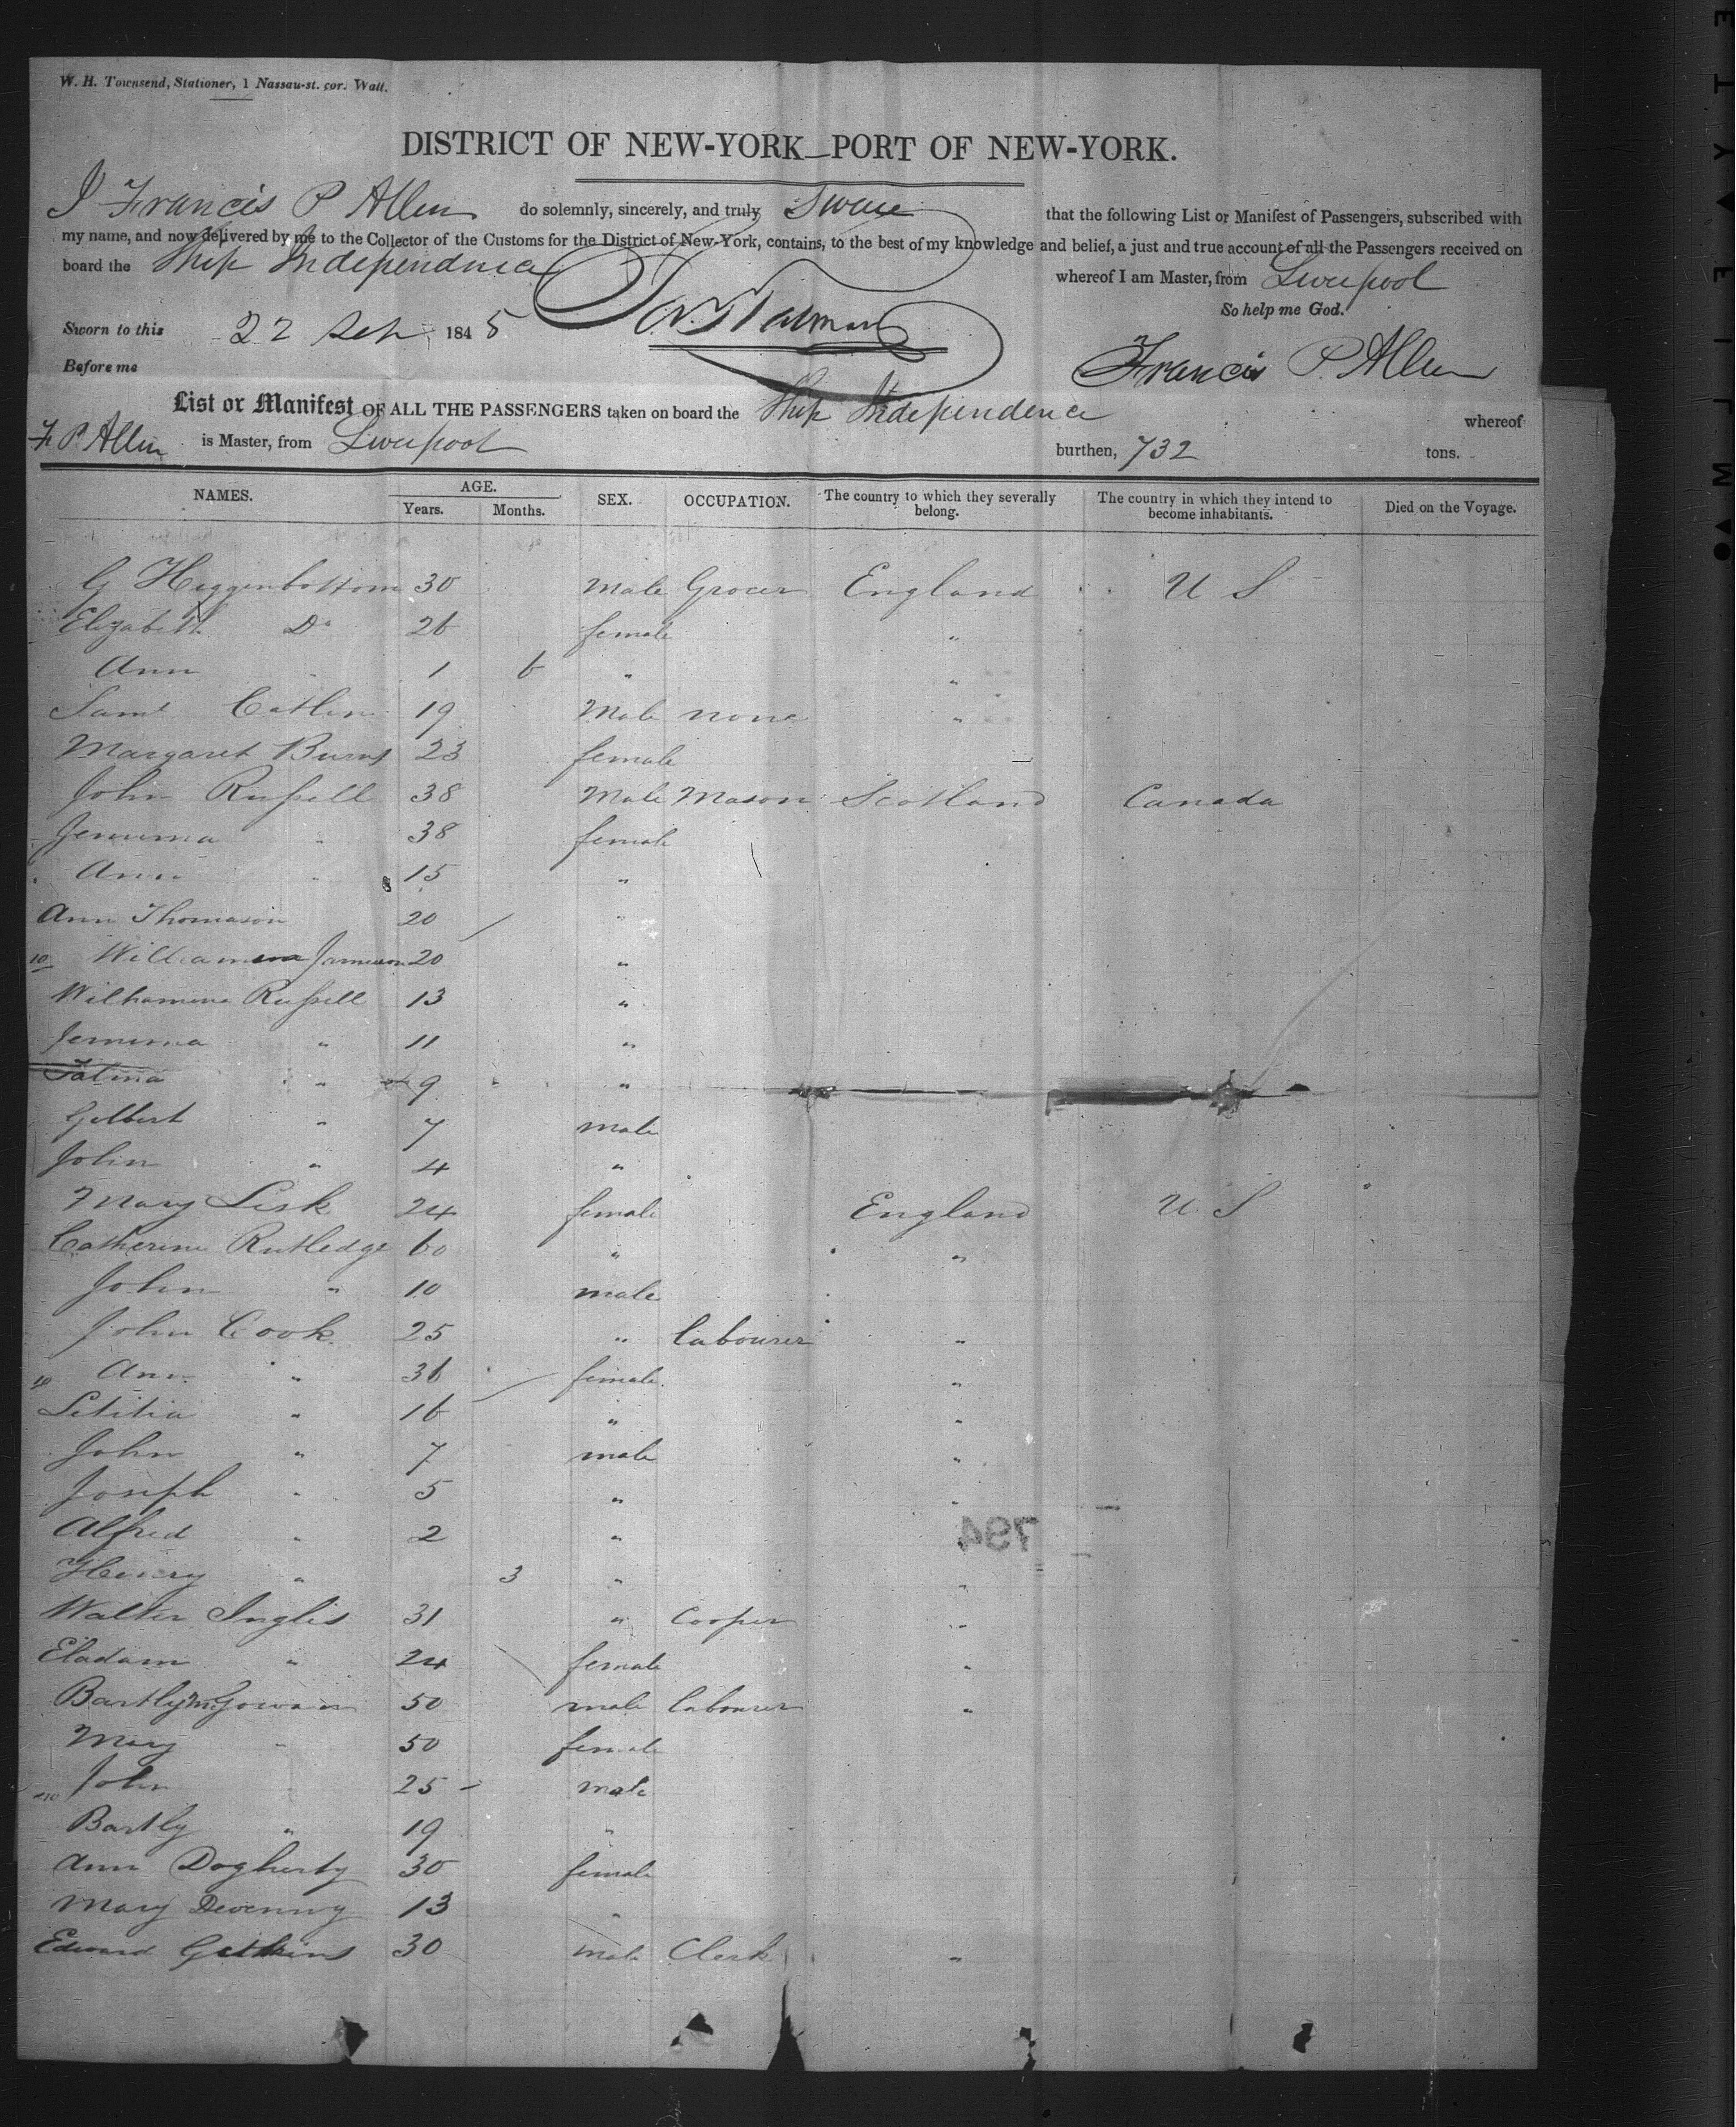 W. H. Townsend, Stationer, 1 Nassau-st. cor. Wall.
DISTRICT OF NEW-YORK—PORT OF NEW-YORK.
I Francis P Allen do solemnly, sincerely, and truly Swear that the following List or Manifest of Passengers, subscribed with
my name, and now delivered by me to the Collector of the Customs for the District of New-York, contains, to the best of my knowledge and belief, a just and true account of all the Passengers received on
board the Ship Independence whereof I am Master, from Liverpool
So help me God.
Sworn to this 22 Sep 1845
Before me
Francis P. Allen
List or Manifest OF ALL THE PASSENGERS taken on board the Ship Independence whereof
F P Allen is Master, from Liverpool burthen, 732 tons.
NAMES. AGE. Years. Months. SEX. OCCUPATION. The country to which they severally belong. The country in which they intend to become inhabitants. Died on the Voyage.
G Higginbottom 30 Male Grocer England U S
Elizabeth Do 26 female "
Ann " 1 6 " "
Saml Catlin 19 Male none "
Margaret Burns 23 female
John Russell 38 Male Mason Scotland Canada
Jemima " 38 female
Ann " 15 "
Ann Thomason 20 "
10 Williamina Jamieson 20 "
Williamina Russell 13 "
Jemima " 11 "
" 9 "
Gilbert " 7 male
John " 4 "
Mary Lisk 24 female England U S
Catherine Rutledge 60 " "
John " 10 male
John Cook 25 " labourer "
Ann " 36 female "
Letitia " 16 " "
John " 7 male "
Joseph " 5 " "
Alfred " 2 " "
Henry " 3 " "
Walter Inglis 31 " Cooper "
" 24 female "
Bartly McGowan 50 male labourer "
Mary " 50 female
John 25 male
Bartly " 19 "
Ann Dogherty 30 female
Mary Devenny 13 "
Edward 30 male Clerk "
794